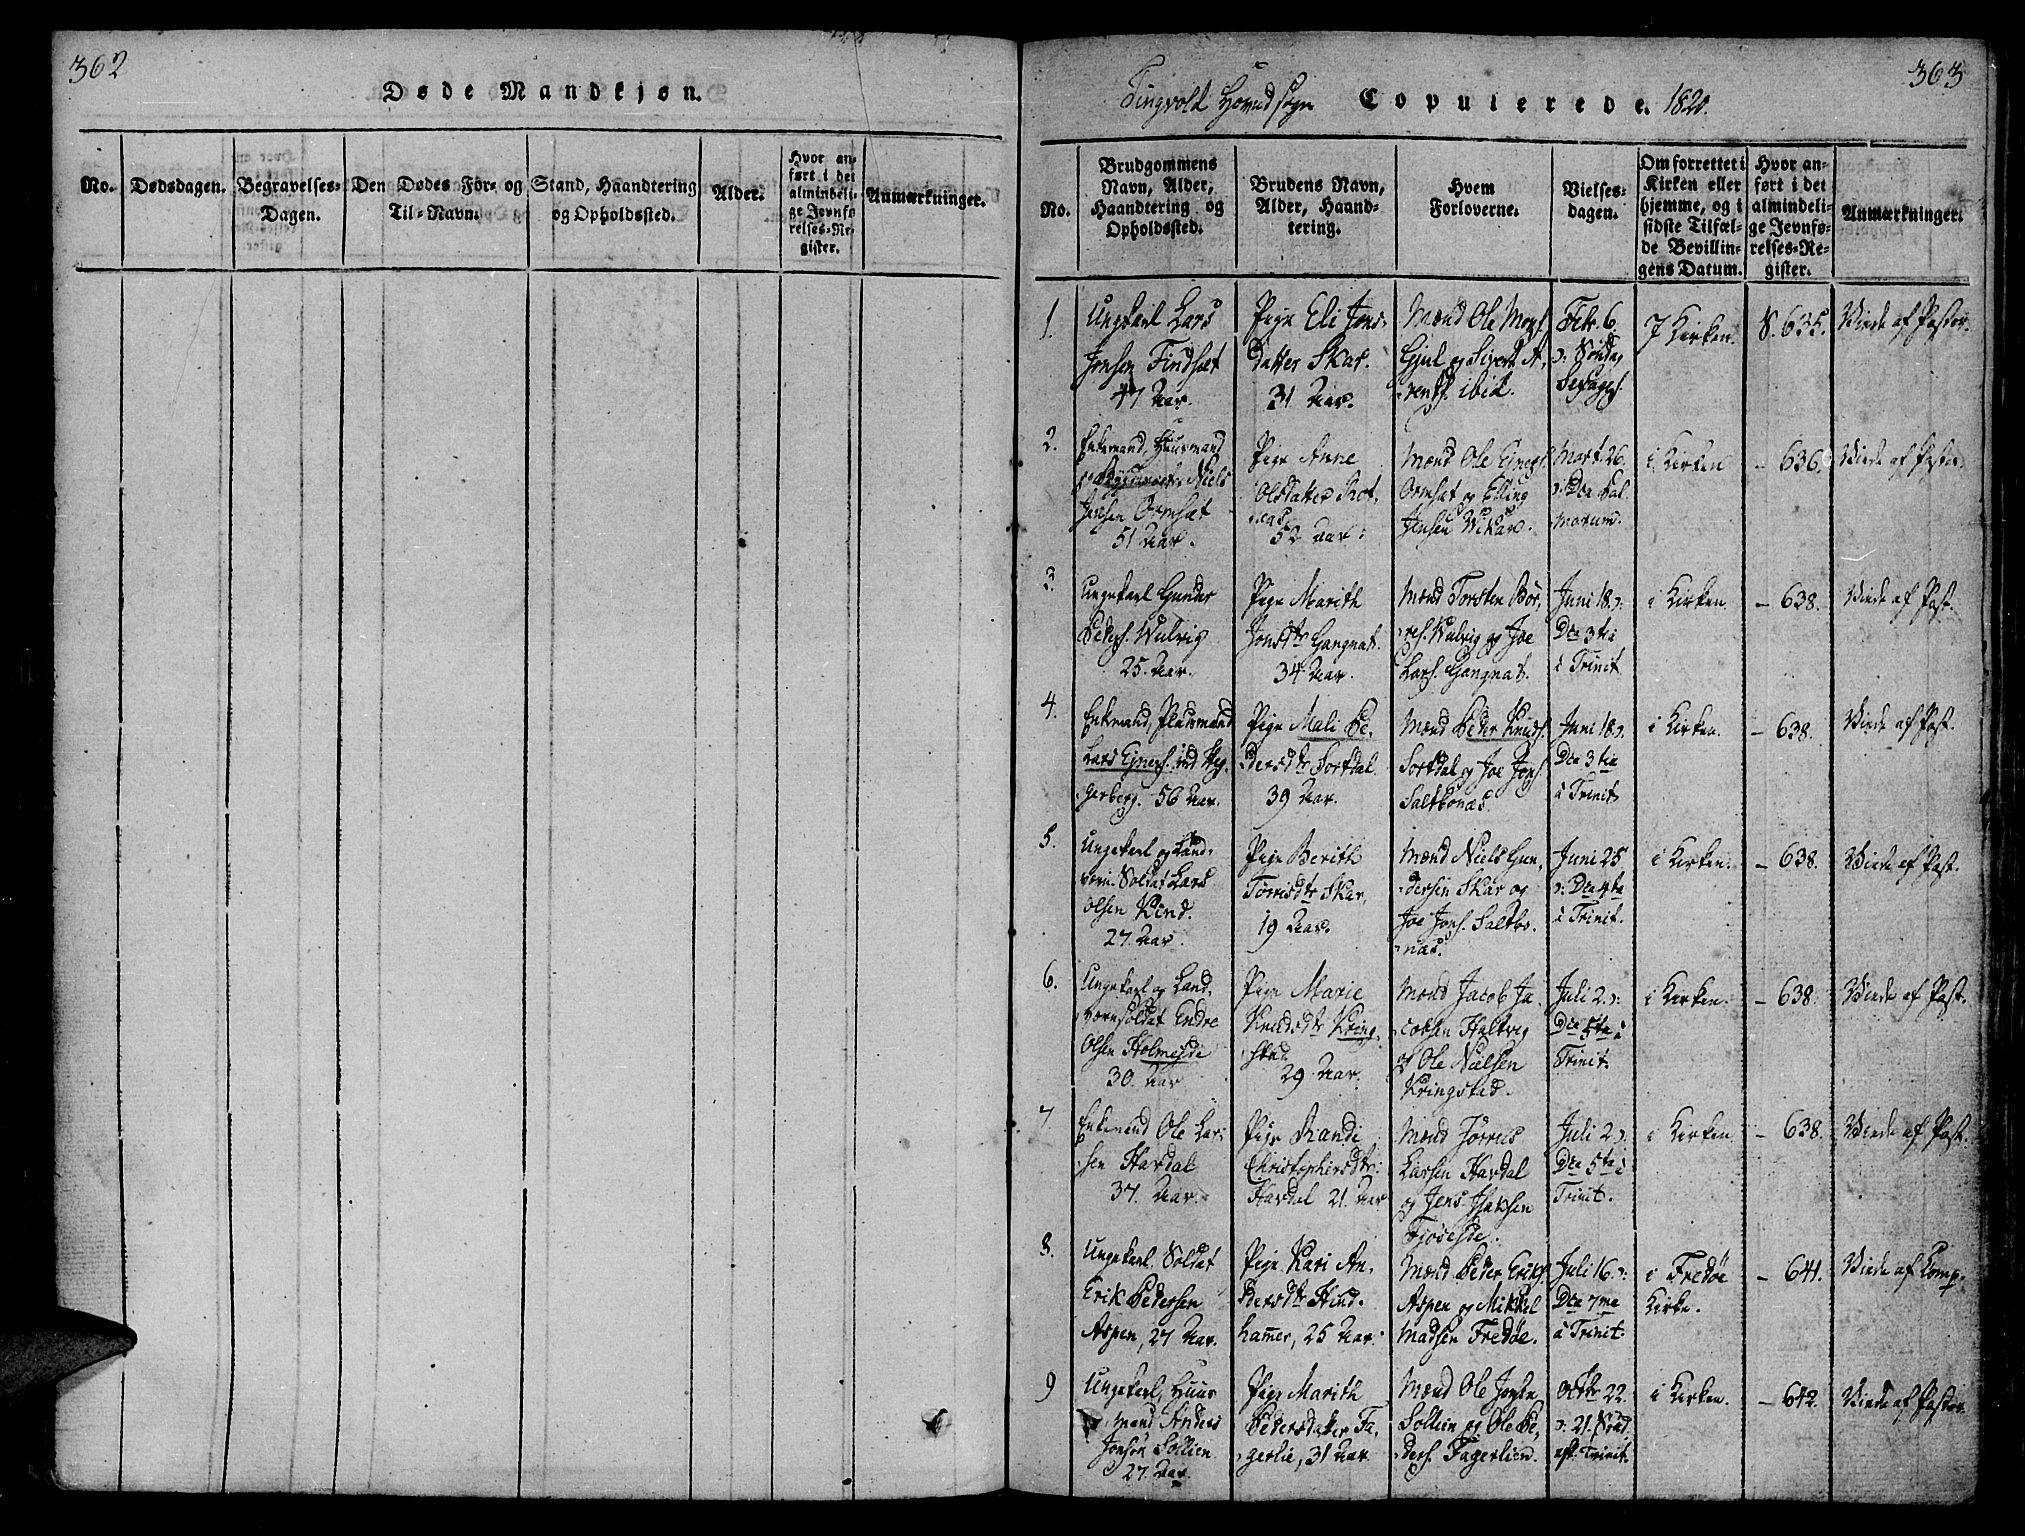 362
Døde Mandkjøn.
No.
Dødsdagen.
Begravelses-
Dagen.
Den Dødes For- og
Til-Navn.
Stand, Haandtering
og Opholdssted.
Alder.
Hvor an-
ført i det
almindeli-
ge Jevnfø-
relses-Re-
gister.
Anmærkninger.
363
Tingvold Hovedsogn Copulerede. 1820.
No.
Brudgommens
Navn, Alder,
Haandtering og
Opholdssted.
Brudens Navn,
Alder, Haand-
tering.
Hvem
Forloverne.
Vielses-
dagen.
Om forrettet i
Kirken eller
hjemme, og i
sidste Tilfæl-
de Bevillin-
gens Datum.
Hvor an-
ført i det
almindeli-
ge Jevnfø-
relses-Re-
gister.
Anmærkninger.
1.
Ungkarl Lars
Jonsen Findset
47 Aar.
Pige Eli Jons-
datter Skar.
31 Aar.
Mænd Ole Mons.
Gjul og Sivert A-
rents. ibid.
Febr. 6.
ɔ: Søndag
Sexages.
I Kirken.
S. 635.
Viede af Pastor.
2.
Enkemand, Huusmand
Niels
Jensen Ormset
51 Aar.
Pige Anne
Olsdatter Rot-
næs
52 Aar.
Mænd Ole Ejners.
Ormset og Elling
Jensen Wikan.
Mart. 26.
ɔ: Dca Pal-
marum.
i Kirken
- 636.
Viede af Pastor.
3.
Ungekarl Gunder
Peders. Wulvig
25. Aar.
Pige Marith
Jonsdtr Gangnat.
34 Aar.
Mænd Torsten Bør-
res. Wulvig og Joe
Lars. Gangnat.
Juni 18. ɔ:
Dca 3tia
à Trinit
i Kirken.
- 638.
Viede af Past.
4.
Enkemand, Pladsmand
Lars Ejners. ved Heg-
gerberg. 56 Aar.
Pige Mali Pe-
dersdtr Sortdal.
39 Aar.
Mænd Peder Knuds.
Sortdal og Joe Jons.
Saltbonæs.
Juni 18. ɔ:
Dca 3tia
à Trinit
i Kirken.
- 638.
Viede af Past.
5.
Ungekarl og Land-
værn-Soldat Lars
Olsen Kind.
27. Aar.
Pige Berith
Tørrisdtr Skar.
19 Aar.
Mænd Niels Gun-
dersen Skar og
Joe Jons. Saltbo-
næs.
Juni 25
ɔ: Dca 4ta
à Trinit.
i Kirken.
- 638.
Viede af Past.
6.
Ungekarl og Land-
værnsoldat Endre
Olsen Holmejde
30. Aar
Pige Marie
Knudsdtr Kring-
stad.
29. Aar.
Mænd Jacob Ja-
cobsen Haltvig
og Ole Nielsen
Kringstad.
Juli 2. ɔ:
Dca 5ta à
Trinit.
i Kirken.
- 638.
Viede af Past.
7.
Enkemand Ole Lar-
sen Hardal
37. Aar.
Pige Randi
Christophersdtr
Hardal 21. Aar
Mænd Jørres
Larsen Hardal
og Jens Isaksen
Fjøsejde.
Juli 2. ɔ:
Dca 5ta à
Trinit.
i Kirken
- 638.
Viede af Past.
8.
Ungekarl. Soldat
Erik Pedersen
Aspen, 27 Aar.
Pige Kari An-
dersdtr Hind-
hamer, 25 Aar.
Mænd Peder Eriks.
Aspen og Mikkel
Madsen Fredøe.
Juli 16. ɔ:
Dca 7me
à Trinit.
i Fredøe
Kirke.
- 641.
Viede af Comp.
9
Ungekarl, Huus-
mand Anders
Jonsøn Sollien
27. Aar.
Pige Marith
Pedersdatter Fa-
gerlie, 31 Aar
Mænd Ole
Sollien og Ole Pe-
ders. Fagerlien.
Octbr 22.
ɔ: 21. Sønd.
eft. Trinit.
i Kirken.
- 642.
Viede af Pastor.